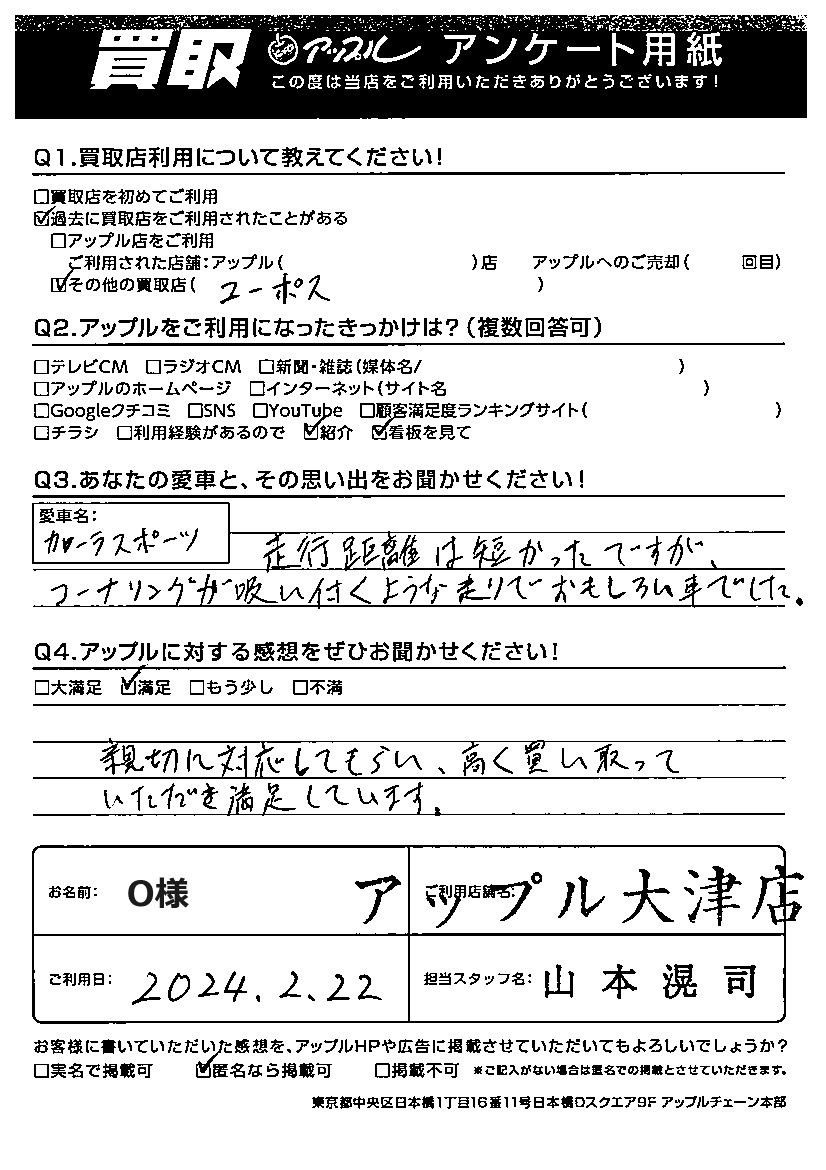 買取 アップル アンケート用紙
この度は当店をご利用いただきありがとうございます!
Q1.買取店利用について教えてください!
□買取店を初めてご利用
☑過去に買取店をご利用されたことがある
□アップル店をご利用
ご利用された店舗:アップル( )店 アップルへのご売却( 回目)
☑その他の買取店( ユーポス )
Q2.アップルをご利用になったきっかけは?(複数回答可)
□テレビCM □ラジオCM □新聞・雑誌(媒体名/ )
□アップルのホームページ □インターネット(サイト名 )
□Googleクチコミ □SNS □YouTube □顧客満足度ランキングサイト( )
□チラシ □利用経験があるので ☑紹介 ☑看板を見て
Q3.あなたの愛車と、その思い出をお聞かせください!
愛車名:
カローラスポーツ 走行距離は短かったですが、
コーナリングが吸い付くような走りでおもしろい車でした。
Q4.アップルに対する感想をぜひお聞かせください!
□大満足 ☑満足 □もう少し □不満
親切に対応してもらい、高く買い取って
いただき満足しています。
お名前: O様 ご利用店舗名: アップル大津店
ご利用日: 2024.2.22 担当スタッフ名: 山本滉司
お客様に書いていただいた感想を、アップルHPや広告に掲載させていただいてもよろしいでしょうか?
□実名で掲載可 ☑匿名なら掲載可 □掲載不可 ※ご記入がない場合は匿名での掲載とさせていただきます。
東京都中央区日本橋1丁目16番11号日本橋Dスクエア9F アップルチェーン本部